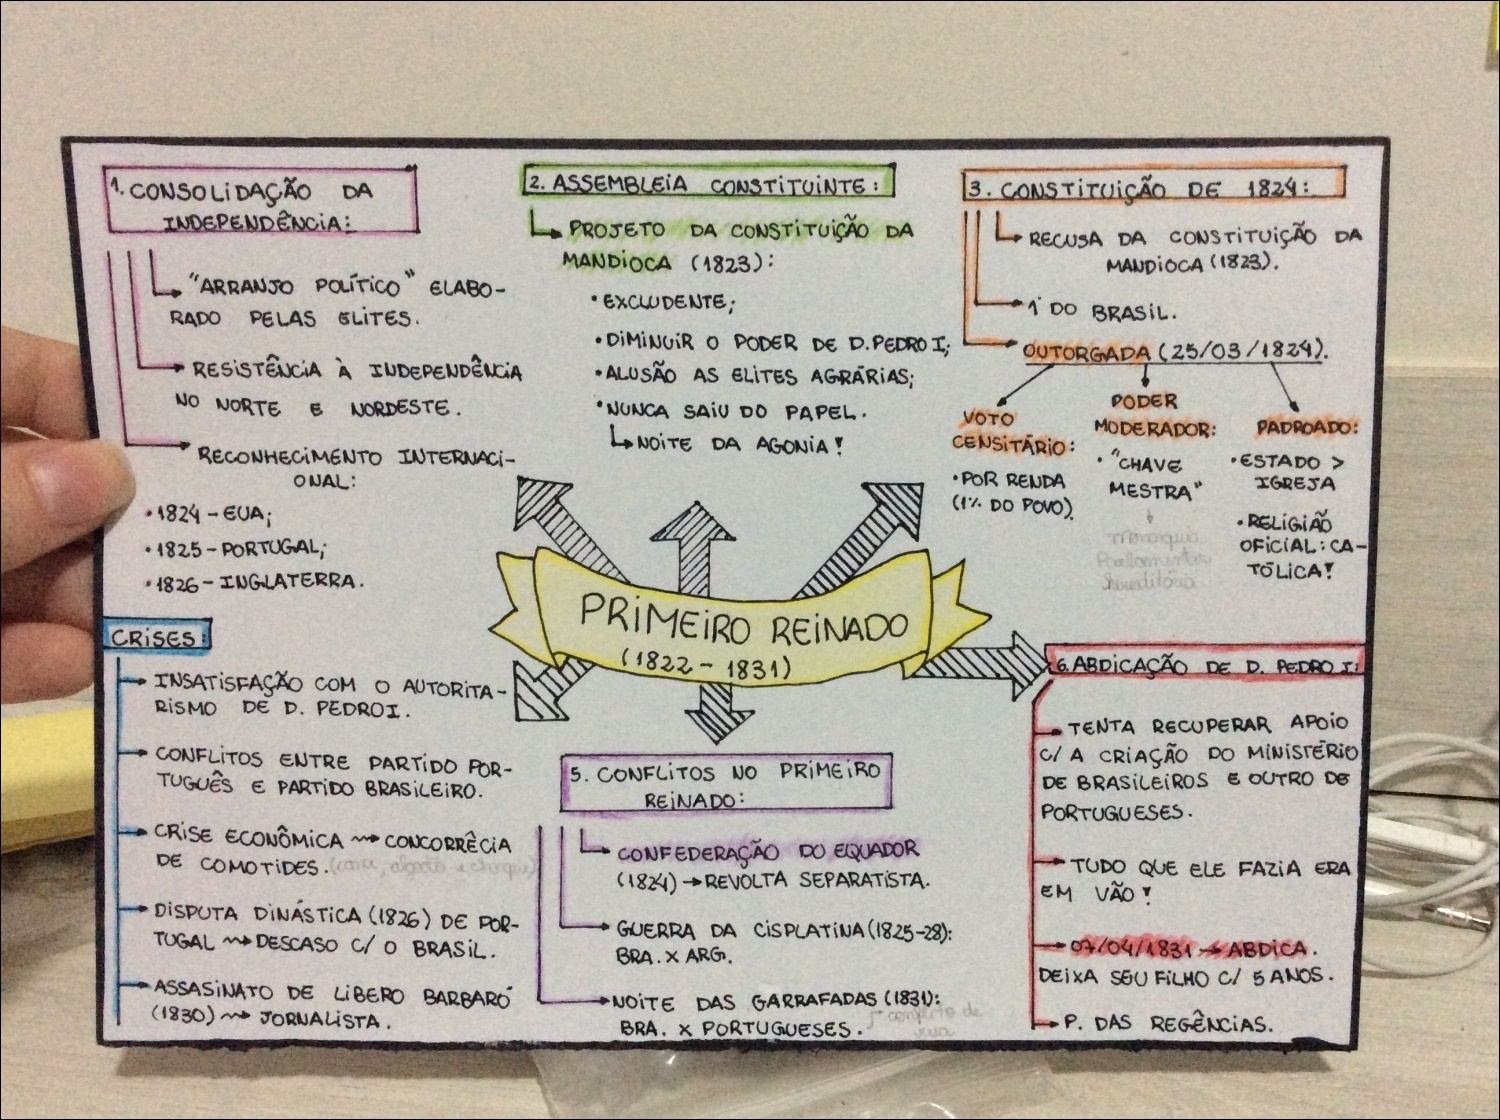 1. CONSOLIDAÇÃO DA
INDEPENDÊNCIA:
"ARRANJO POLÍTICO" ELABO-
RADO PELAS ELITES.
RESISTÊNCIA À INDEPENDÊNCIA
NO NORTE E NORDESTE.
RECONHECIMENTO INTERNACI-
ONAL:
• 1824 - EUA;
• 1825 - PORTUGAL;
• 1826 - INGLATERRA.
2. ASSEMBLEIA CONSTITUINTE:
PROJETO DA CONSTITUIÇÃO DA
MANDIOCA (1823):
• EXCLUDENTE;
• DIMINUIR O PODER DE D. PEDRO I;
• ALUSÃO AS ELITES AGRÁRIAS;
• NUNCA SAIU DO PAPEL.
NOITE DA AGONIA!
3. CONSTITUIÇÃO DE 1824:
RECUSA DA CONSTITUIÇÃO DA
MANDIOCA (1823).
1ª DO BRASIL.
OUTORGADA (25/03/1824).
VOTO
CENSITÁRIO:
• POR RENDA
(1% DO POVO)
PODER
MODERADOR:
• "CHAVE
MESTRA"
monarquia
Parlamentar
hereditária
PADROADO:
• ESTADO >
IGREJA
• RELIGIÃO
OFICIAL: CA-
TÓLICA!
PRIMEIRO REINADO
(1822 - 1831)
CRISES:
INSATISFAÇÃO COM O AUTORITA-
RISMO DE D. PEDRO I.
CONFLITOS ENTRE PARTIDO POR-
TUGUÊS E PARTIDO BRASILEIRO.
CRISE ECONÔMICA → CONCORRÊCIA
DE COMOTIDES.
DISPUTA DINÁSTICA (1826) DE POR-
TUGAL → DESCASO C/ O BRASIL.
ASSASINATO DE LÍBERO BARBARÓ
(1830) → JORNALISTA.
5. CONFLITOS NO PRIMEIRO
REINADO:
CONFEDERAÇÃO DO EQUADOR
(1824) → REVOLTA SEPARATISTA.
GUERRA DA CISPLATINA (1825-28):
BRA. X ARG.
NOITE DAS GARRAFADAS (1831):
BRA. X PORTUGUESES.
conflito de
rua
6. ABDICAÇÃO DE D. PEDRO I:
TENTA RECUPERAR APOIO
C/ A CRIAÇÃO DO MINISTÉRIO
DE BRASILEIROS E OUTRO DE
PORTUGUESES.
TUDO QUE ELE FAZIA ERA
EM VÃO!
07/04/1831 → ABDICA.
DEIXA SEU FILHO C/ 5 ANOS.
P. DAS REGÊNCIAS.